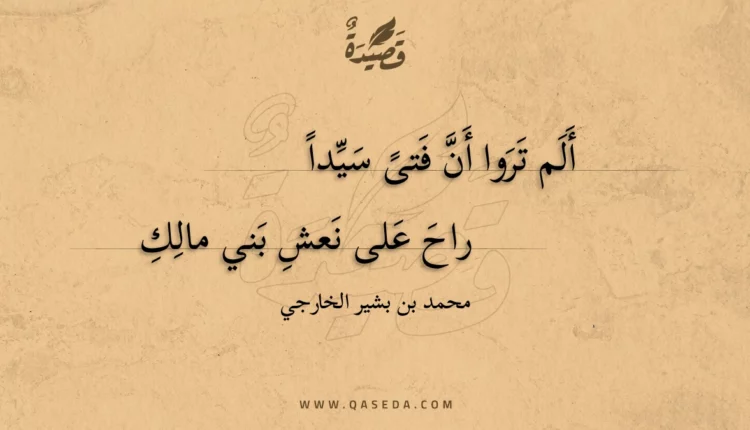 قَصِيدَةٌ
أَلَم تَرَوا أَنَّ فَتىً سَيِّداً
راحَ عَلى نَعشِ بَني مالِكِ
محمد بن بشير الخارجي
WWW.QASEDA.COM